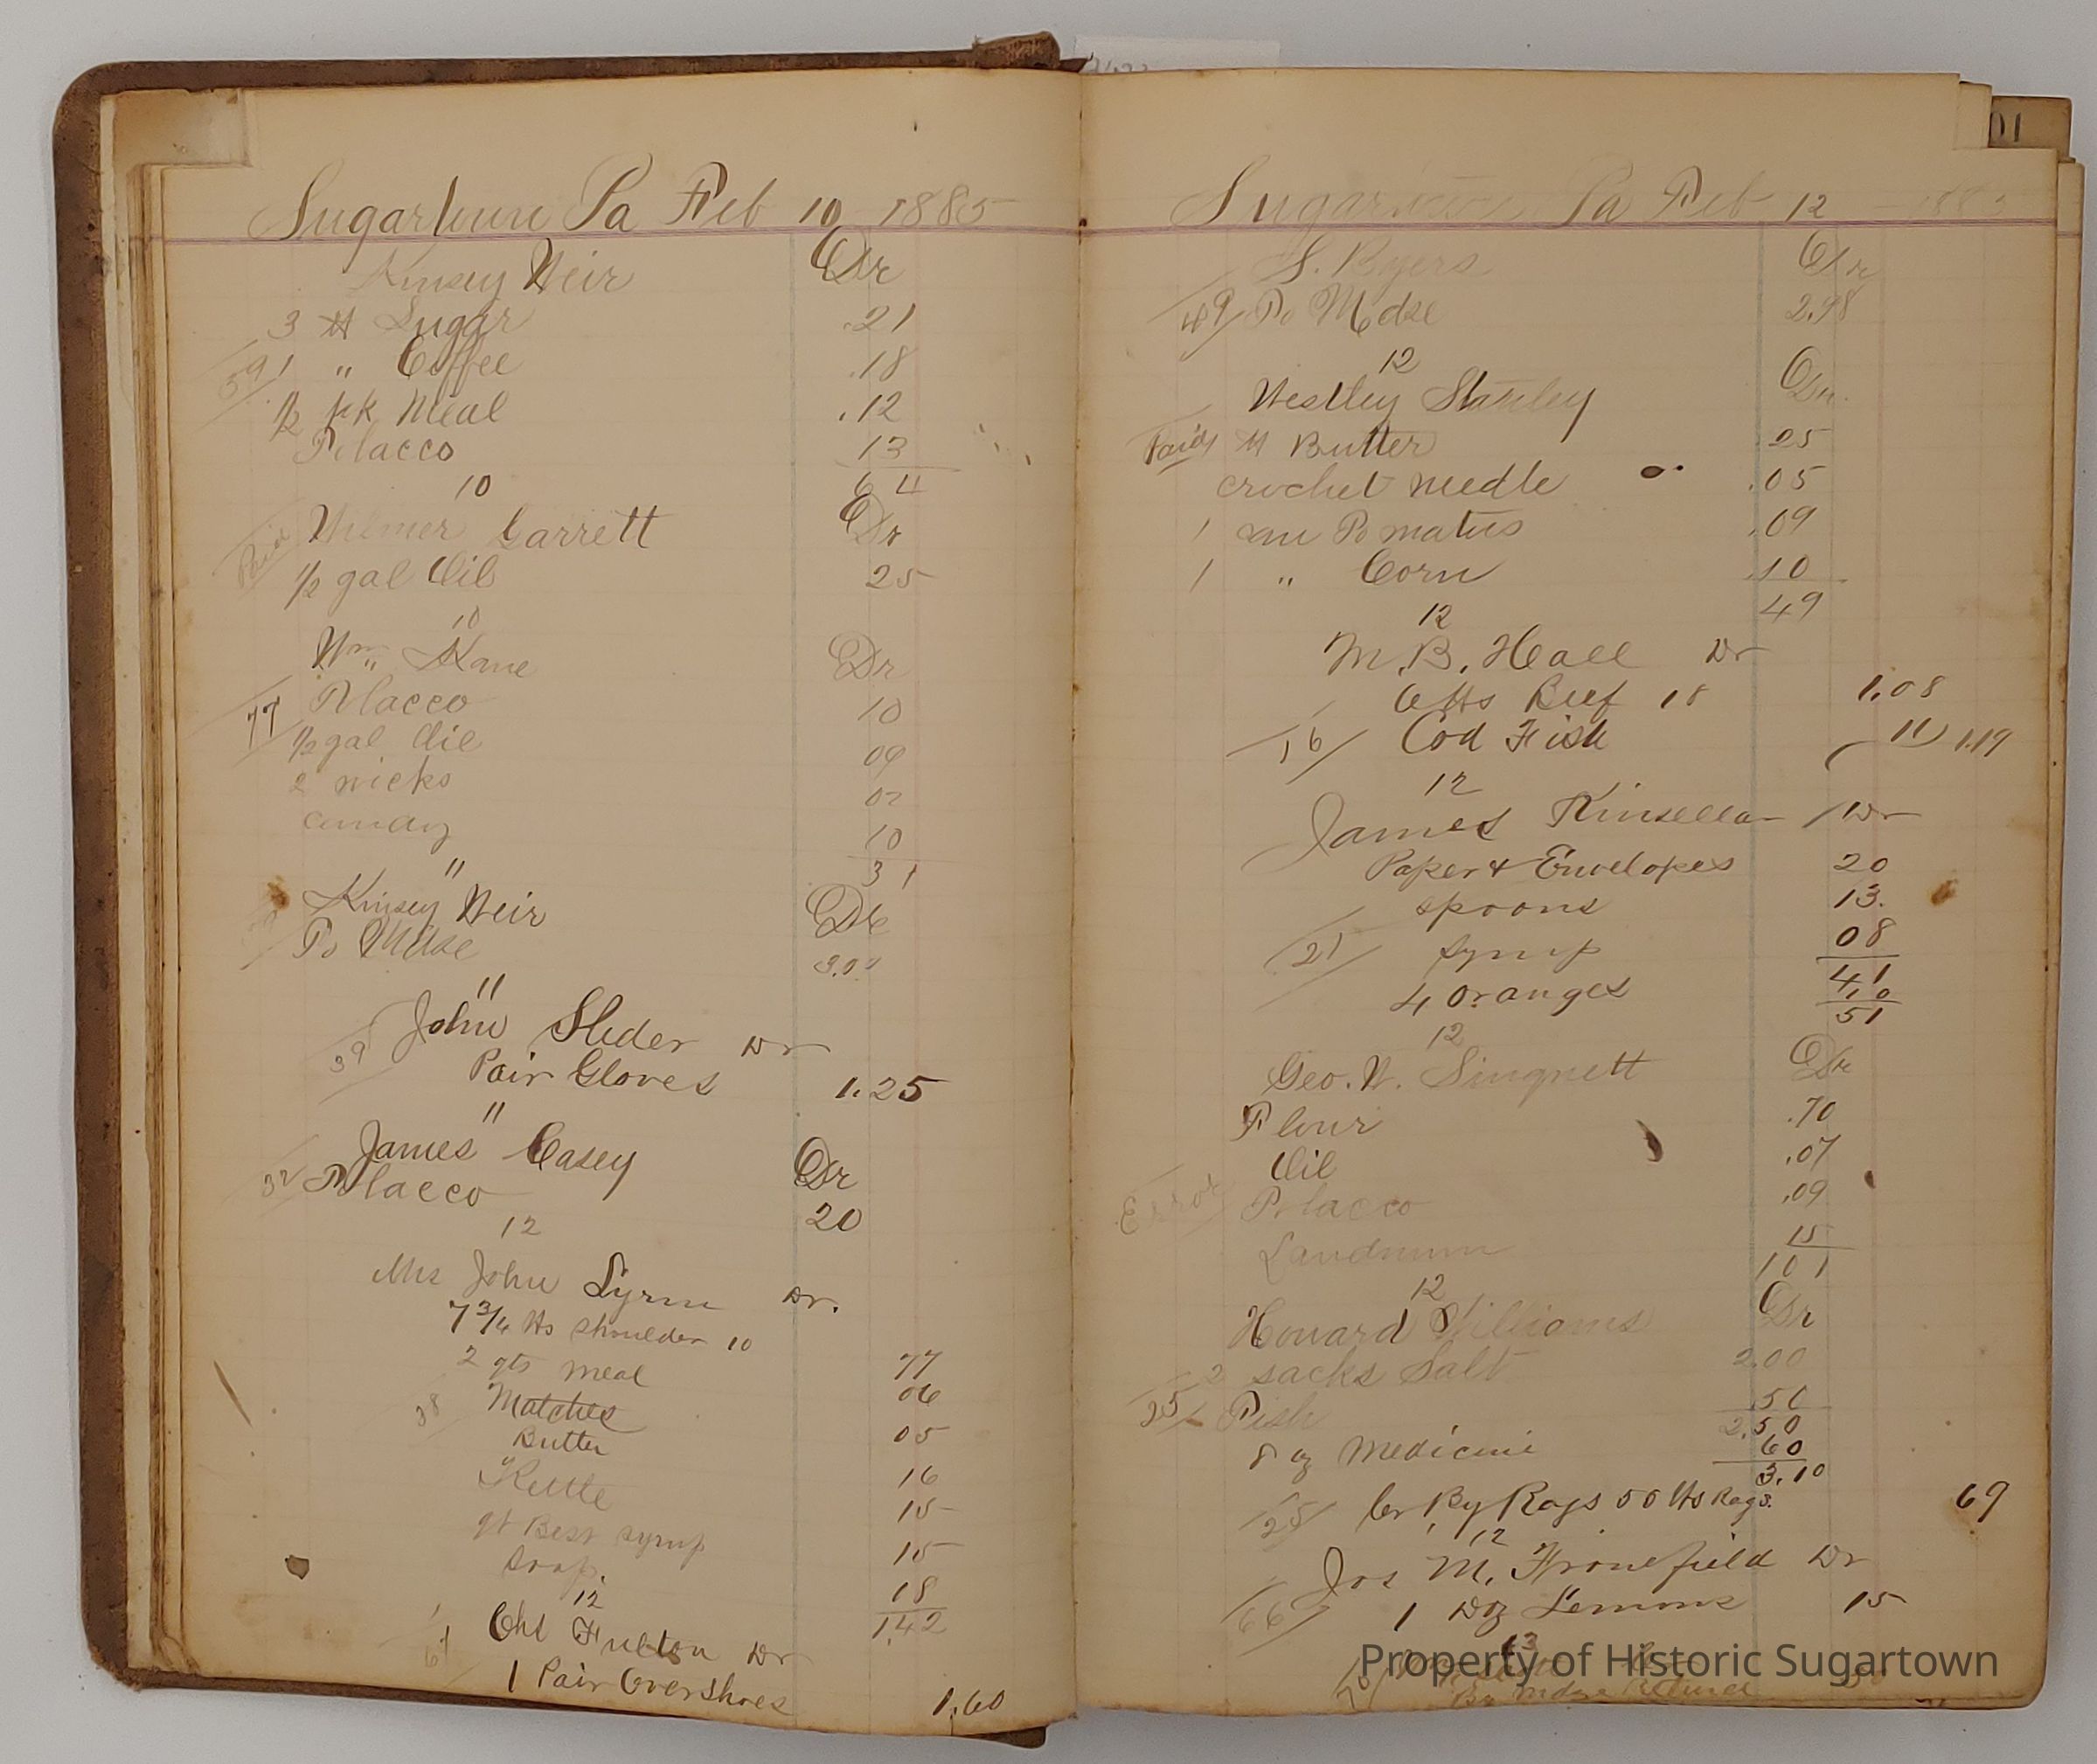 Sugartown Pa Feb 10 1885
Kinsey Weir Dr
3 lb Sugar .21
59 1 " Coffee .18
1/2 pk Meal .12
Tobacco 13
64
10
Paid Wilmer Garrett Dr
1/2 gal Oil 25
10
Wm Kane Dr
77 Tobacco 10
1/2 gal Oil 09
2 wicks 02
candy 10
31
11
Kinsey Weir Dr
To Mdse
11
39 John Slider Dr
Pair Gloves 1.25
11
James Casey Dr
32 Tobacco 20
12
Mrs John Dr.
7 3/4 lbs shoulder 10 77
2 qts meal 06
38 Matches 05
Butter 16
Kettle 15
qt Best syrup 15
Soap. 18
1.42
12
Fulton Dr
1 Pair Overshoes 1.60
Sugartown Pa Feb 12
S. Byers Dr
49 To Mdse 2.98
12
Westley Stanley Dr
Paid lb Butter 25
crochet needle .05
1 can Tomatus .09
1 " Corn .10
49
12
M. B. Hall Dr
6 lbs Beef 18 1.08
16 Cod Fish 11 1.19
12
James Kinsella Dr
Paper & Envelopes 20
spoons 13.
21 syrup 08
41
4 oranges 10
51
12
Geo. W. Singnett Dr
Flour .70
Oil .07
Error Tobacco .09
Laudnum 15
101
12
Howard Williams Dr
2 sacks Salt 2.00
25 Fish 50
2.50
8 oz Medicine 60
3.10
25 Cr By Rags 50 lbs Rags. 69
12
Jos M. Fronefield Dr
66 1 Doz Lemons 15
13
Property of Historic Sugartown